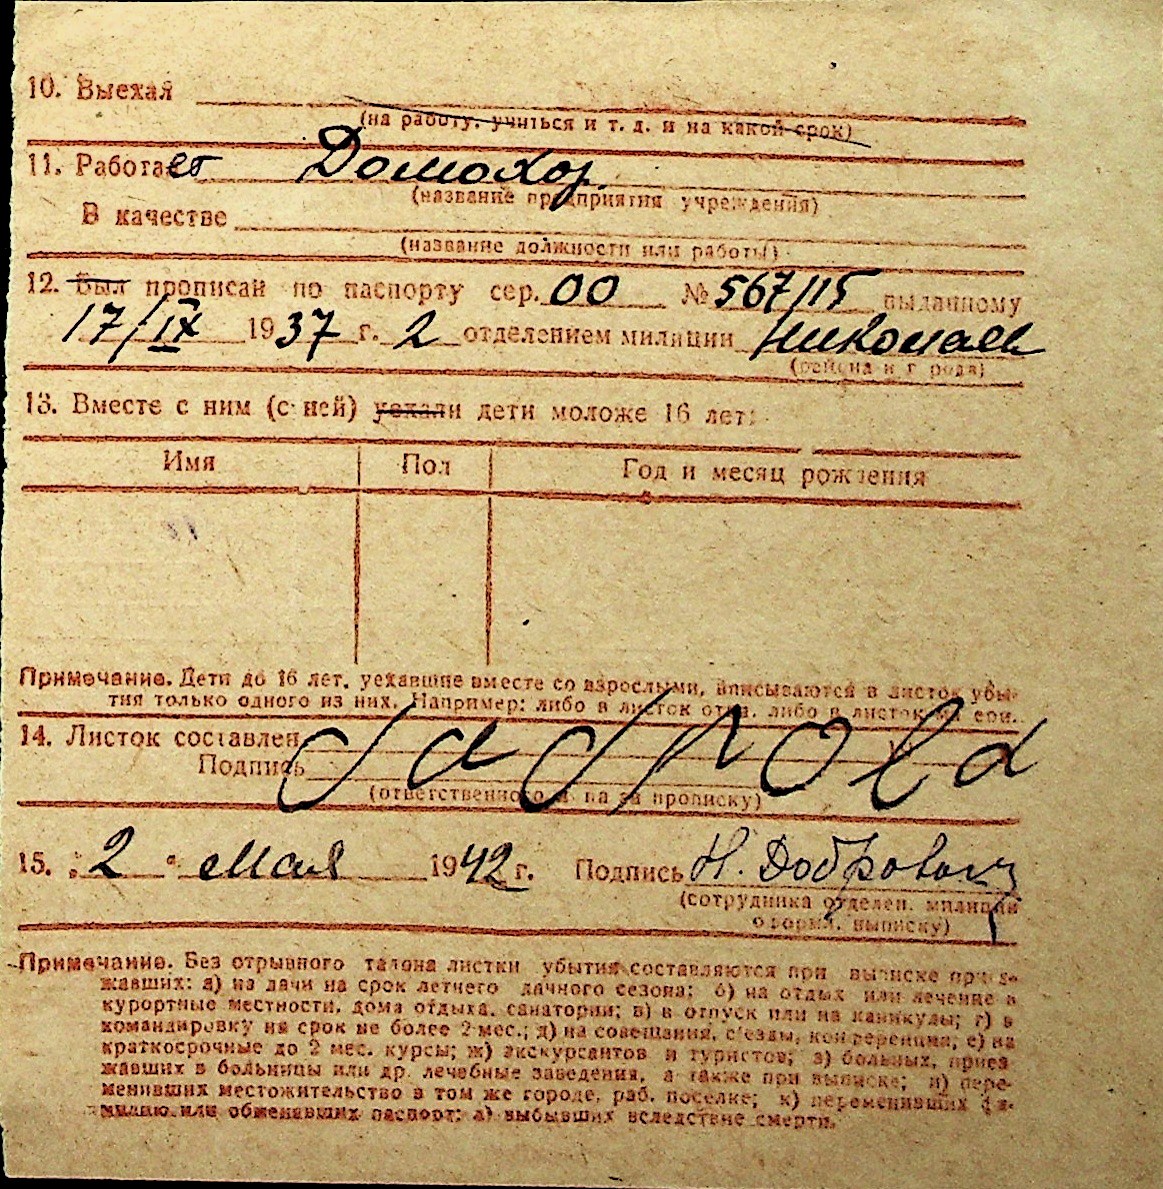 10. Выехал
(на работу, учиться и т. д. и на какой срок)
11. Работает Домохоз.
(название предприятия учреждения)
В качестве
(название должности или работы)
12. Был прописан по паспорту сер. 00 № 567115 выданному
17/IX 1937 г. 2 отделением милиции Николаев
(района и г рода)
13. Вместе с ним (с ней) уехали дети моложе 16 лет:
Имя Пол Год и месяц рождения
Примечание. Дети до 16 лет, уехавшие вместе со взрослыми, вписываются в листок убы-
тия только одного из них. Например: либо в листок отца, либо в листок
14. Листок составлен
Подпись
(ответственного за прописку)
15. „2" Мая 1942 г. Подпись Н. Добровол
(сотрудника отделен. милиции
оформ. выписку)
Примечание. Без отрывного талона листки убытия составляются при выписке приез-
жавших: а) на дачи на срок летнего дачного сезона; б) на отдых или лечение в
курортные местности, дома отдыха, санатории; в) в отпуск или на каникулы; г) в
командировку на срок не более 2 мес.; д) на совещания, съезды, конференции; е) на
краткосрочные до 2 мес. курсы; ж) экскурсантов и туристов; з) больных, приез
жавших в больницы или др. лечебные заведения, а также при выписке; и) пере-
менивших местожительство в том же городе, раб. поселке; к) переменивших фа-
милию или обменявших паспорт; л) выбывших вследствие смерти.